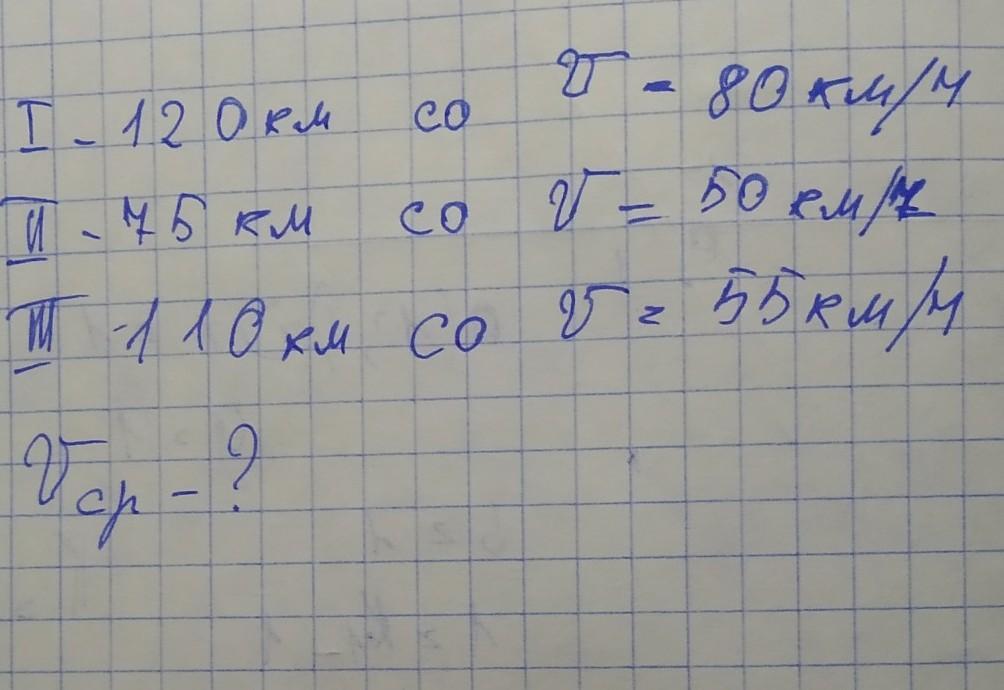 I - 120 км со V - 80 км/ч
II - 75 км со V = 50 км/ч
III - 110 км со V = 55 км/ч
Vср - ?